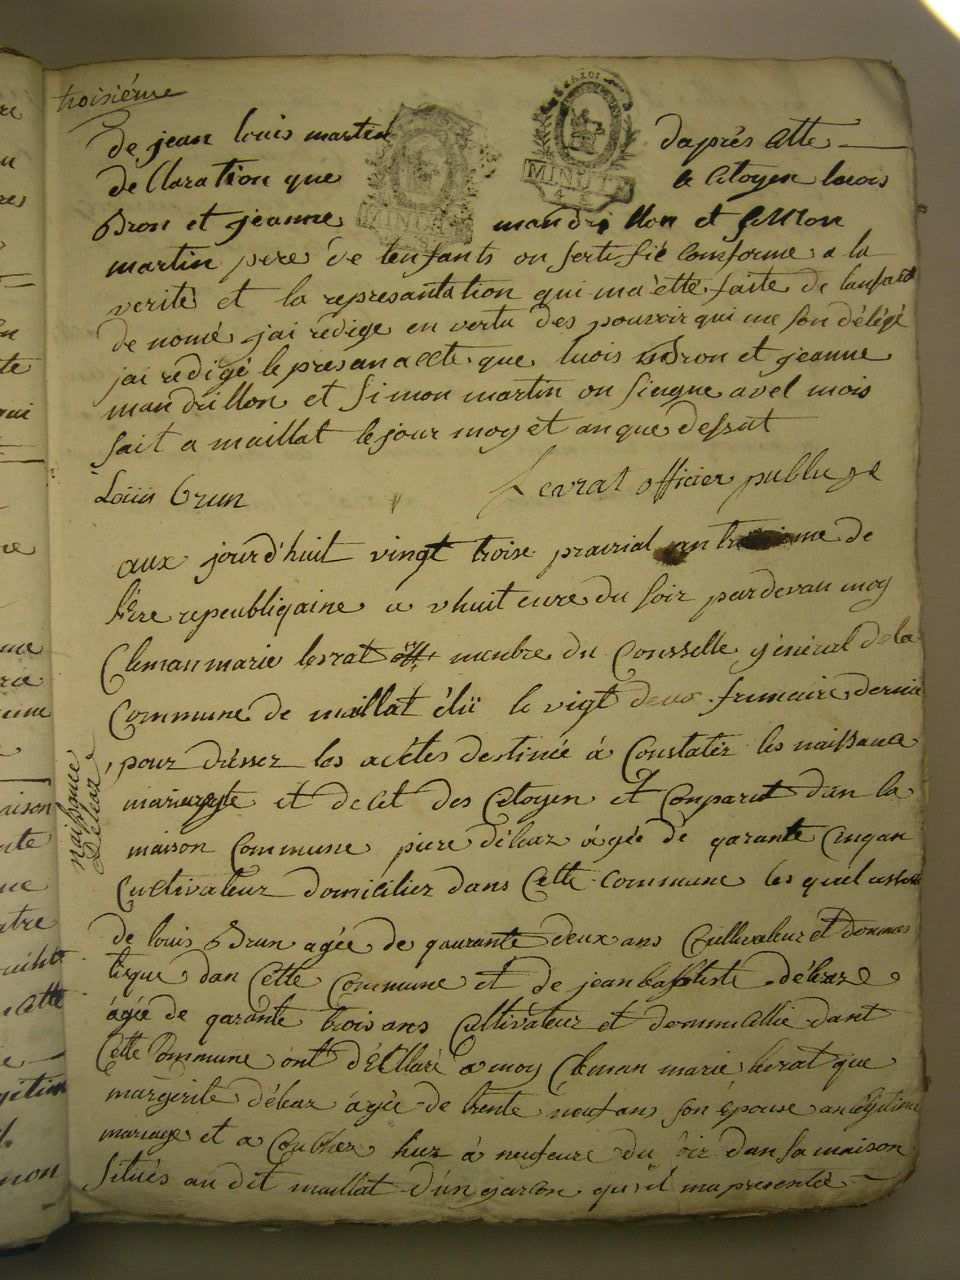 troisiéme
MINUT
MINUT
de jean louis martin daprés cette
de Claration que le Citoyen louis
Bron et jeanne mandrillon et Simon
martin pere de lenfants on sertifié Comforme a la
verité et la represantation qui ma été faite de lanfant
de nomé jai rédigé en vertu des pouvoir qui me son délégé
jai redigé le presan acte que louis Bron et jeanne
mandrillon et Simon martin on Singne avel mois
fait a maillat le jour moy et an que desut
Louis brun
Levrat officier publiqe
aux jourd'huit vingt troise prairial an troisieme de
l'ere repeubliqaine a vhuit eure du soir par devan moy
Cleman marie levrat off menbre du Consselle general de la
Commune de maillat élü le vigt deux frumaire dernie
pour drésser les actes destinée à Constater les naissance
mariage et decet des Citoyen et Comparut dan la
maison Commune piere débaz ágée de qarante Cinqan
Cultivateur domicilier dans Cette Commune les quel assisté
de louis Brun agée de qaurante deux ans Cultivateur et dommes
tique dan Cette Commune et de jean baptiste débaz
ágée de qarante trois ans Cultivateur et dommicillie dant
Cette Commune ont déCllaré a moy Cleman marie levrat que
margerite débaz ágée de trente neuf an son épouse an légitime
mariage et a Coucher hier à neuf eure du soir dan sa maison
Situés au dit maillat d'un garcon qu'il ma presenté
naissance
débaz